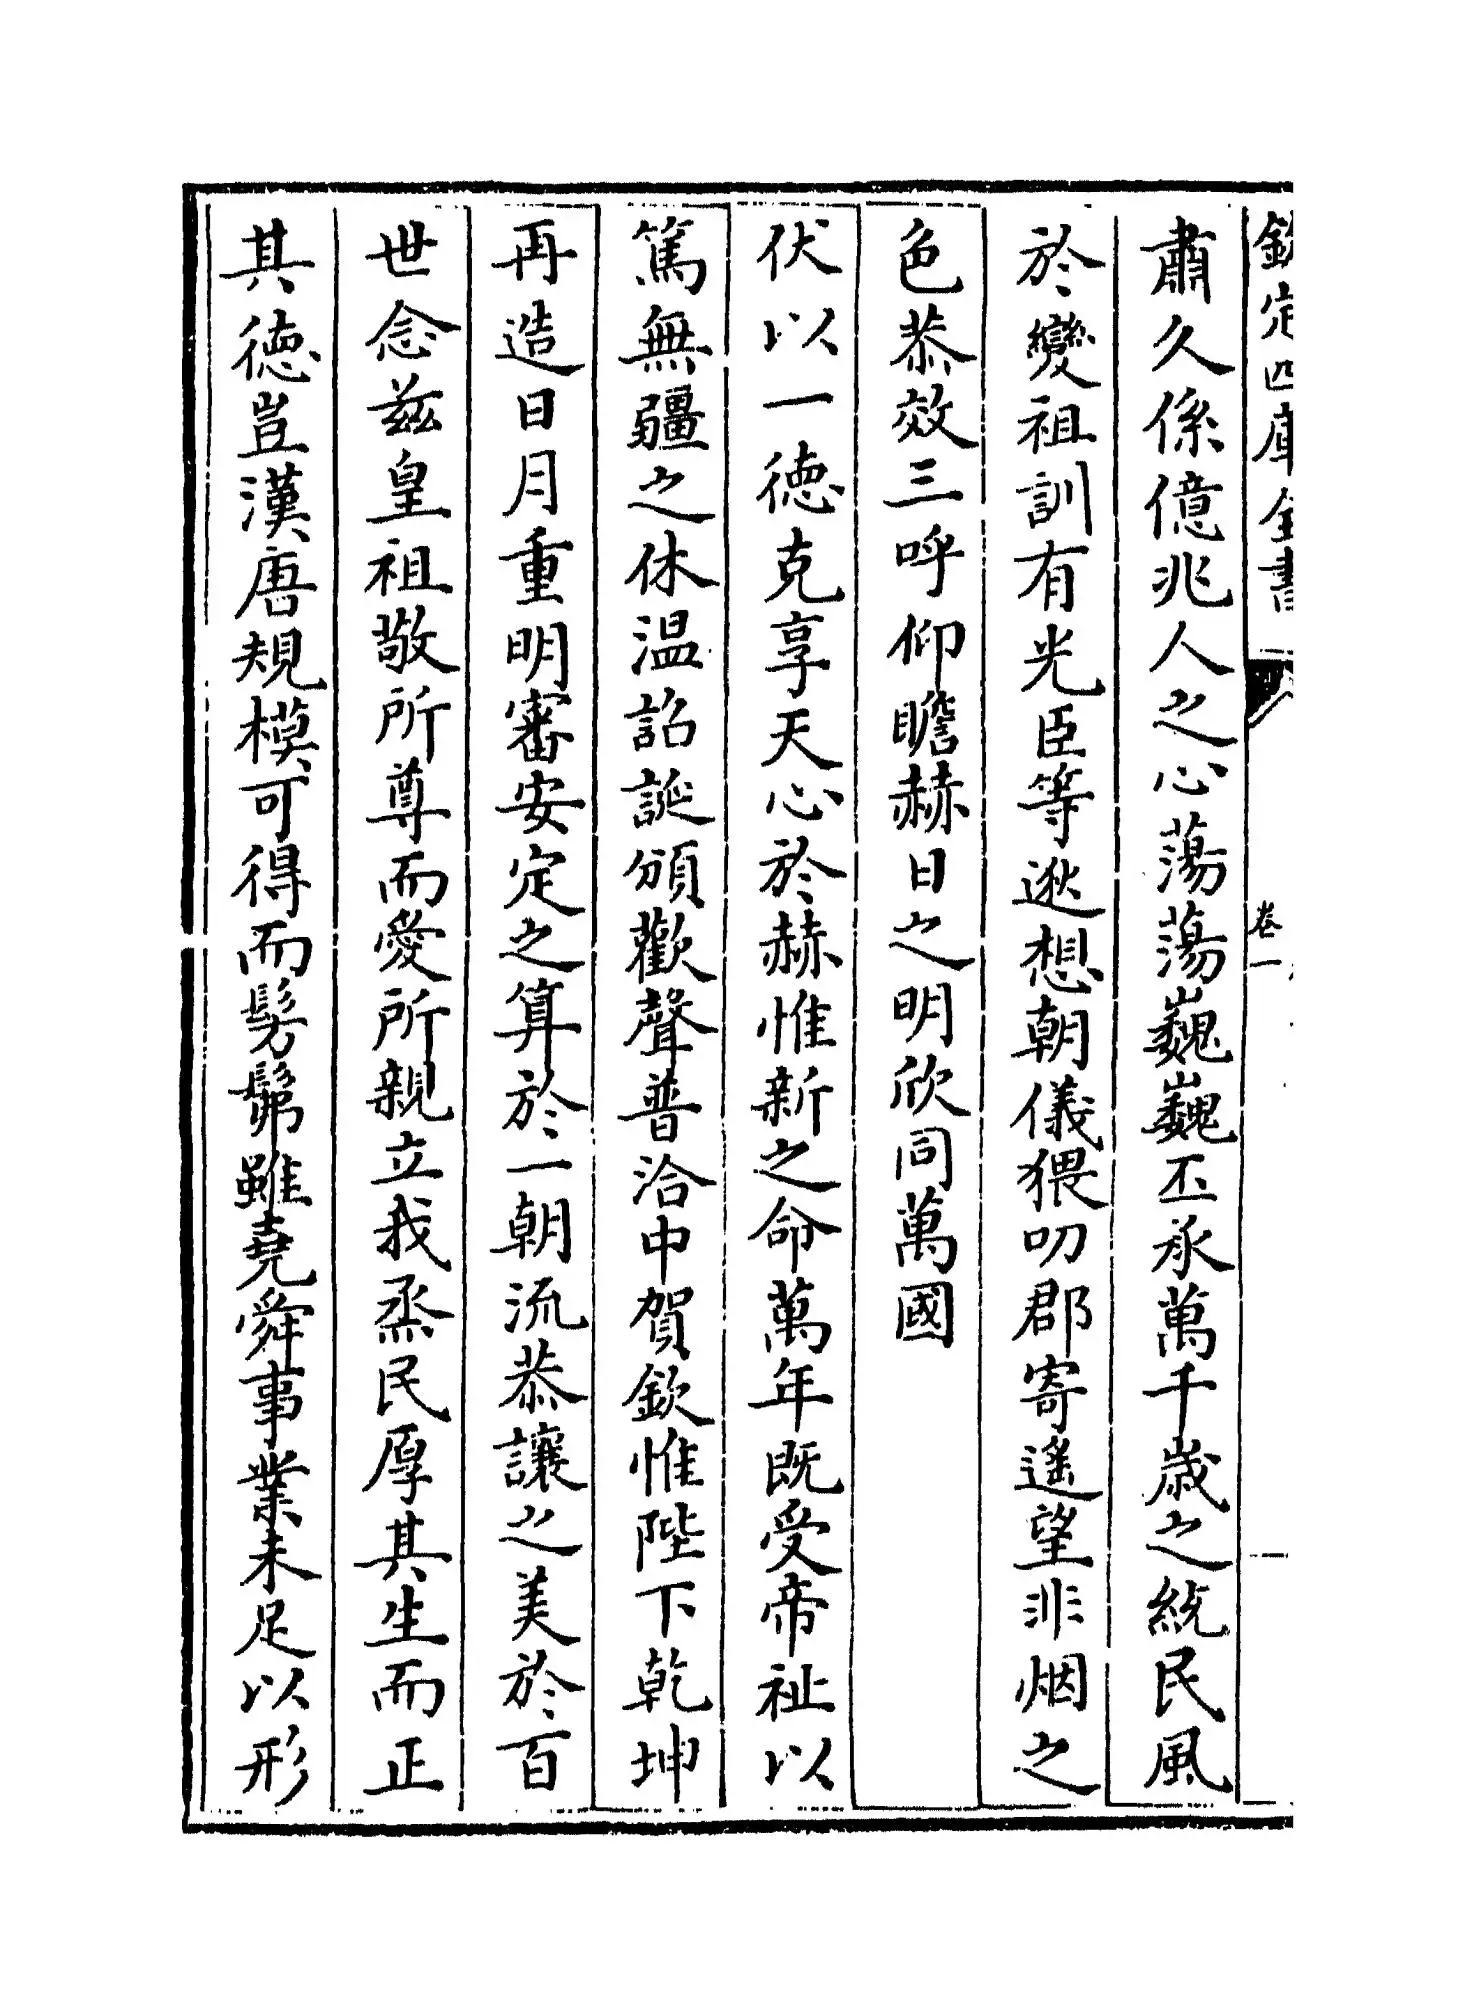 欽定四庫全書 卷一
肅久係億兆人之心蕩蕩巍巍丕承萬千歲之統民風
於變祖訓有光臣等逖想朝儀猥叨郡寄遙望非烟之
色恭效三呼仰瞻赫日之明欣同萬國
伏以一德克享天心於赫惟新之命萬年既受帝祉以
篤無疆之休温詔誕頒歡聲普洽中賀欽惟陛下乾坤
再造日月重明審安定之算於一朝流恭讓之美於百
世念兹皇祖敬所尊而愛所親立我烝民厚其生而正
其德豈漢唐規模可得而髣髴雖堯舜事業未足以形